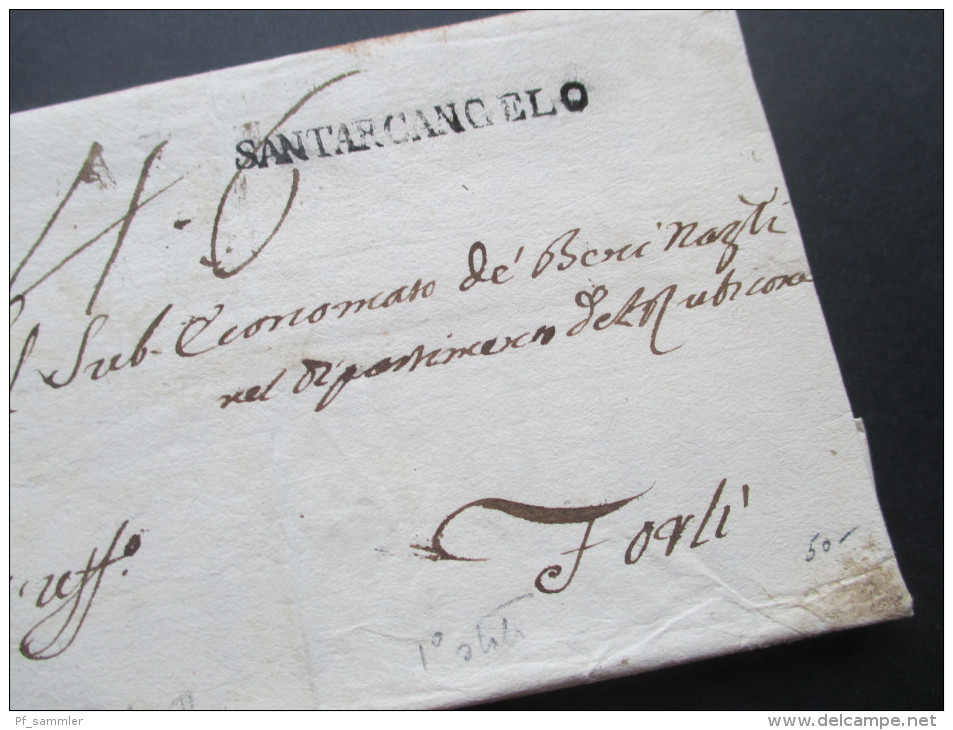 SANTARCANGELO
4.6
Sub-Economato de' Beni Naz̃li
nel Dipartimento del Rubicone
Forlì
50-
1°
Pf_sammler
www.delcampe.net